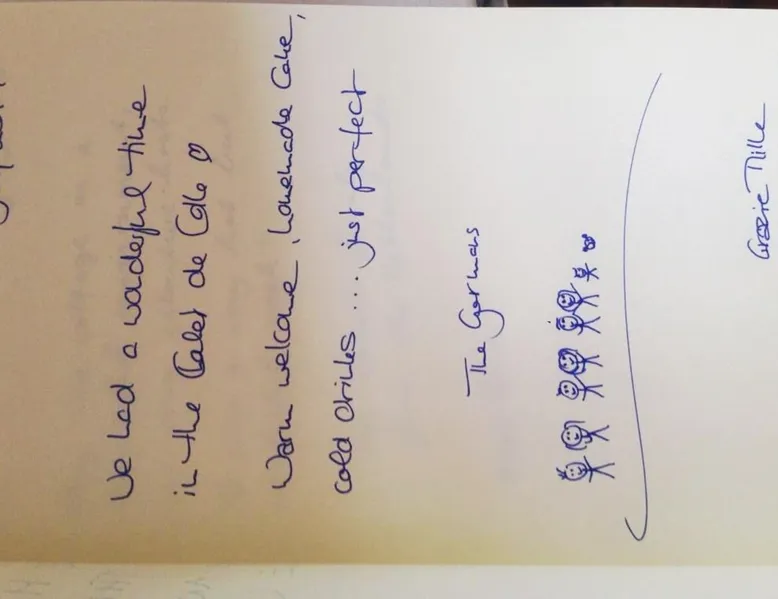 We had a wonderful time
in the Calet de Cólle ♡
Warm welcome, homemade cake,
cold drinks ... just perfect
The Germans
Grazie Mille